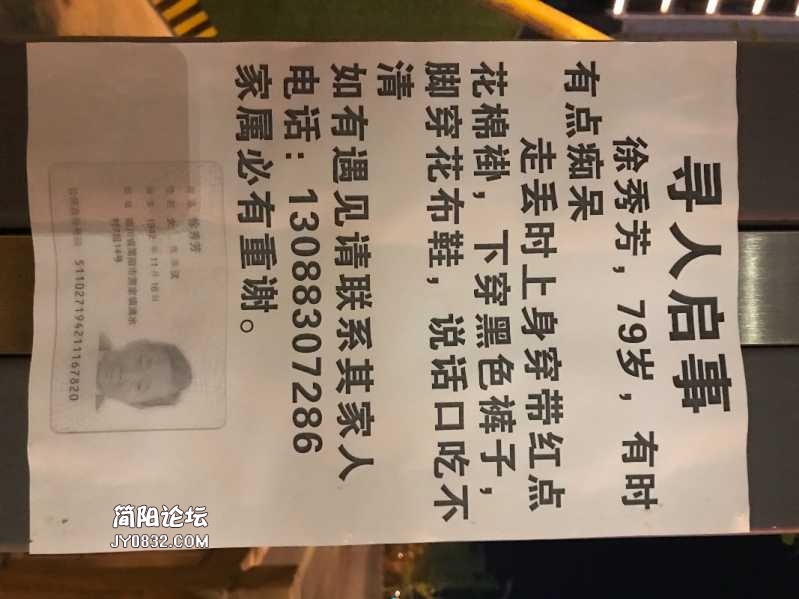 寻人启事
徐秀芳，79岁，有时
有点痴呆
走丢时上身穿带红点
花棉褂，下穿黑色裤子，
脚穿花布鞋，说话口吃不
清
如有遇见请联系其家人
电话：13088307286
家属必有重谢。
姓名 徐秀芳
性别 女 民族 汉
出生 1942 年 11 月 16 日
住址 四川省简阳市
村7组14号
公民身份号码 511027194211167820
简阳论坛
JY0832.COM